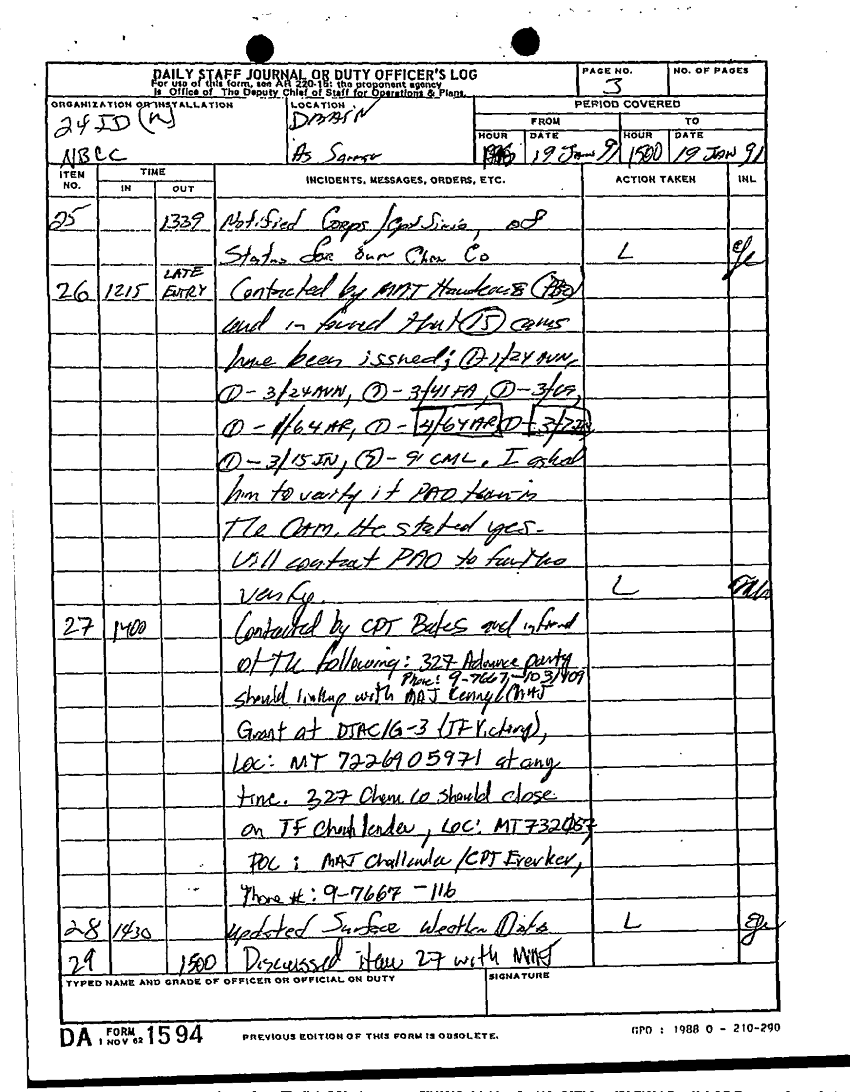 DAILY STAFF JOURNAL OR DUTY OFFICER'S LOG
For use of this form, see AR 220-15; the proponent agency
is Office of The Deputy Chief of Staff for Operations & Plans.
PAGE NO.
3
NO. OF PAGES
ORGANIZATION OR INSTALLATION
24 ID (M)
NBCC
LOCATION
DMAIN
PERIOD COVERED
FROM
TO
HOUR
DATE
19 JAN 91
HOUR
1500
DATE
19 JAN 91
ITEM NO.
TIME
IN
OUT
INCIDENTS, MESSAGES, ORDERS, ETC.
ACTION TAKEN
INL
25 1339 Notified Corps / of
Status for our Chem Co L
26 1215 LATE ENTRY Contacted by MAJ
and informed that (15) cams
have been issued; 1/24 AVN,
3/24 AVN, 3/41 FA,
1/64 AR, 4/64 AR
3/15 IN, 91 CML. I asked
him to verify if PAO team is
The He stated yes.
Will contact PAO to further
verify. L
27 1400 Contacted by CPT Bates and informd
of the following: 327 Advance party
Phone: 9-7667-103/109
should linkup with MAJ
Grant at DTAC/G-3 (TF Victory),
LOC: MT 7226905971 at any
time. 327 Chem Co should close
on TF , LOC: MT
POC: MAJ /CPT
Phone #: 9-7667-116
28 1430 Updated Surface Weather Data L
29 1500 Discussed item 27 with MAJ
TYPED NAME AND GRADE OF OFFICER OR OFFICIAL ON DUTY
SIGNATURE
DA FORM 1594
1 NOV 62
PREVIOUS EDITION OF THIS FORM IS OBSOLETE.
GPO : 1988 O - 210-290